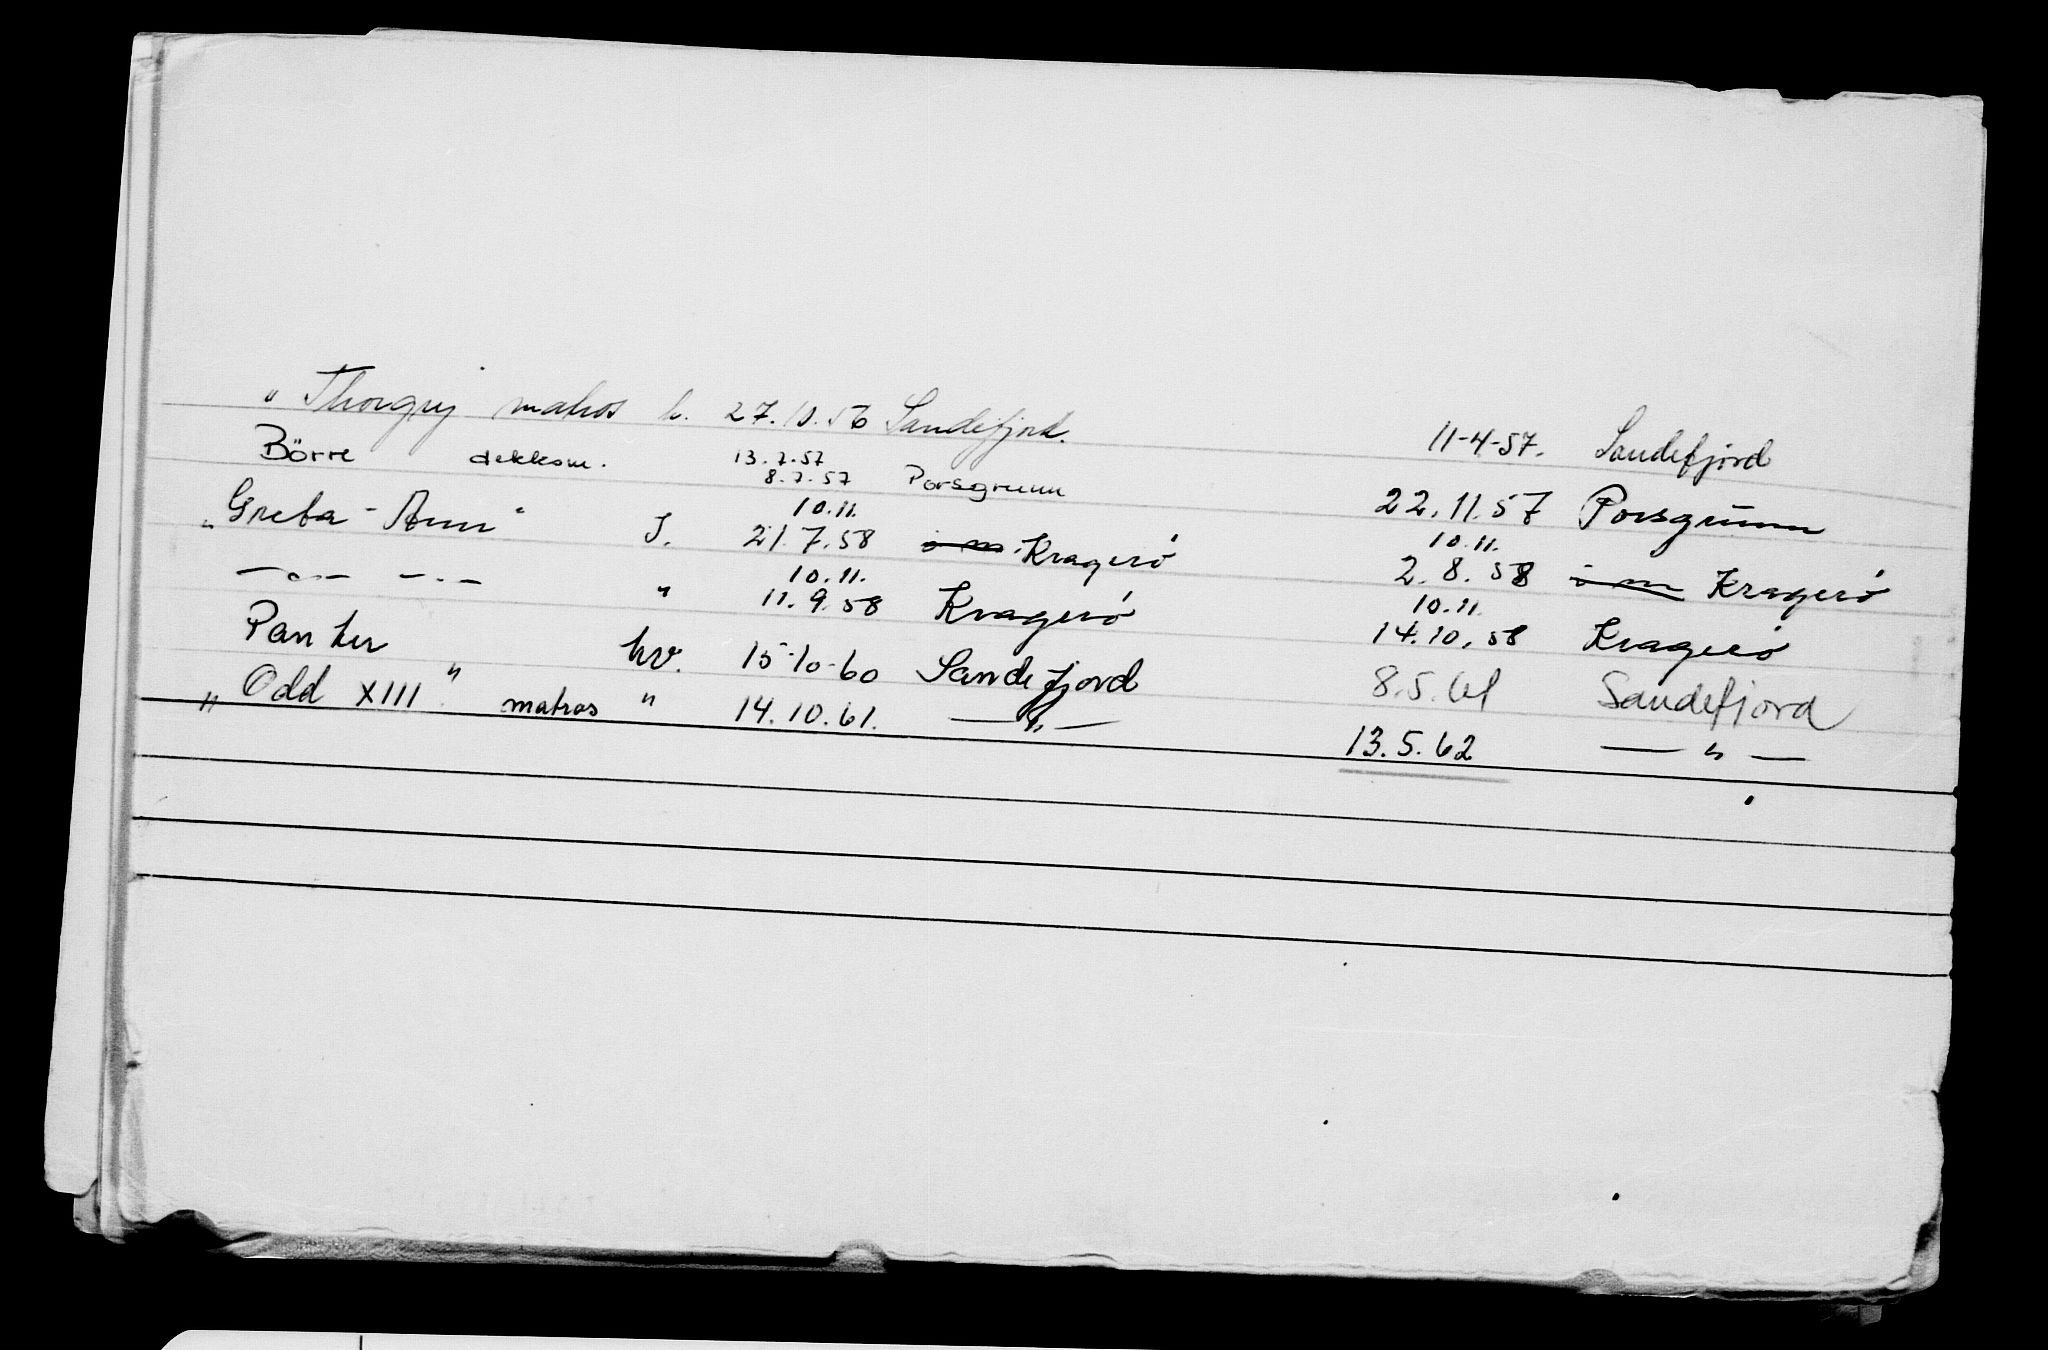 " Thorgry matros h. 27.10.56 Sandefjord. 11-4-57. Sandefjord
Börre dekksm. 13.7.57
8.7.57 Porsgrunn 22.11.57 Porsgrunn
10.11. 10.11.
„Greta-Ann" J. 21.7.58 Kragerö 2.8.58 Kragerö
10.11. 10.11.
—〃— —〃— " 11.9.58 Kragerö 14.10.58 Kragerö
Panter hv. 15-10-60 Sandefjord 8.5.61 Sandefjord
„ Odd XIII " matros " 14.10.61. —〃— 13.5.62 —〃—